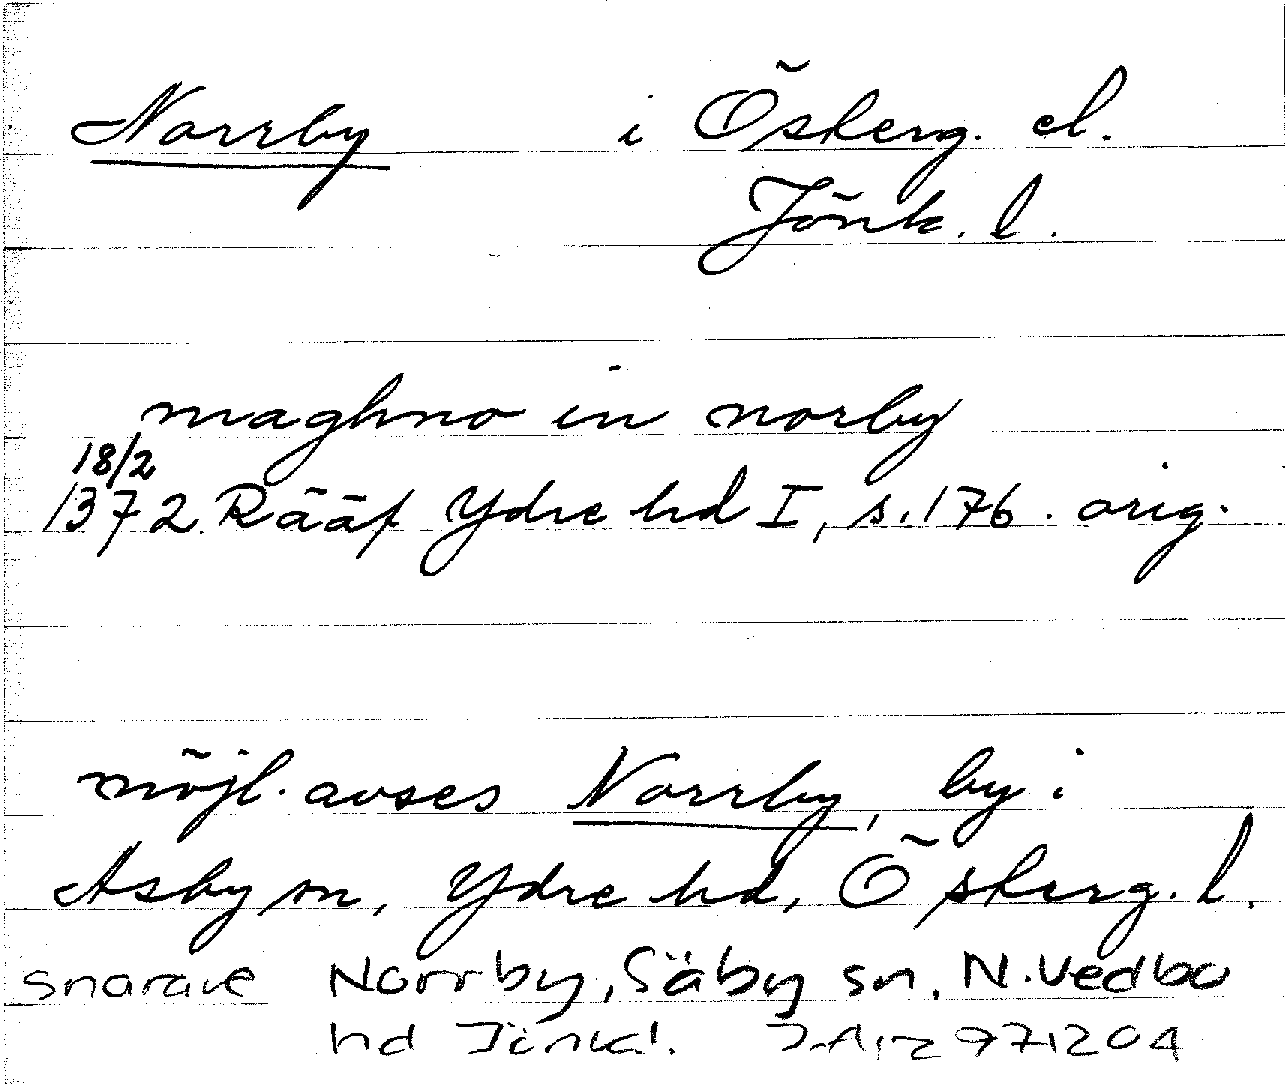 Norrby i Östergl. el.
Jönk. l.
maghno in norby
18/2
1372 Rääf Ydre hd I, s. 176. orig.
möjl. avses Norrby, by i
Asby sn, Ydre hd, Österg. l.
snarare Norrby, Säby sn, N. Vedbo
hd Jönk l. 971204